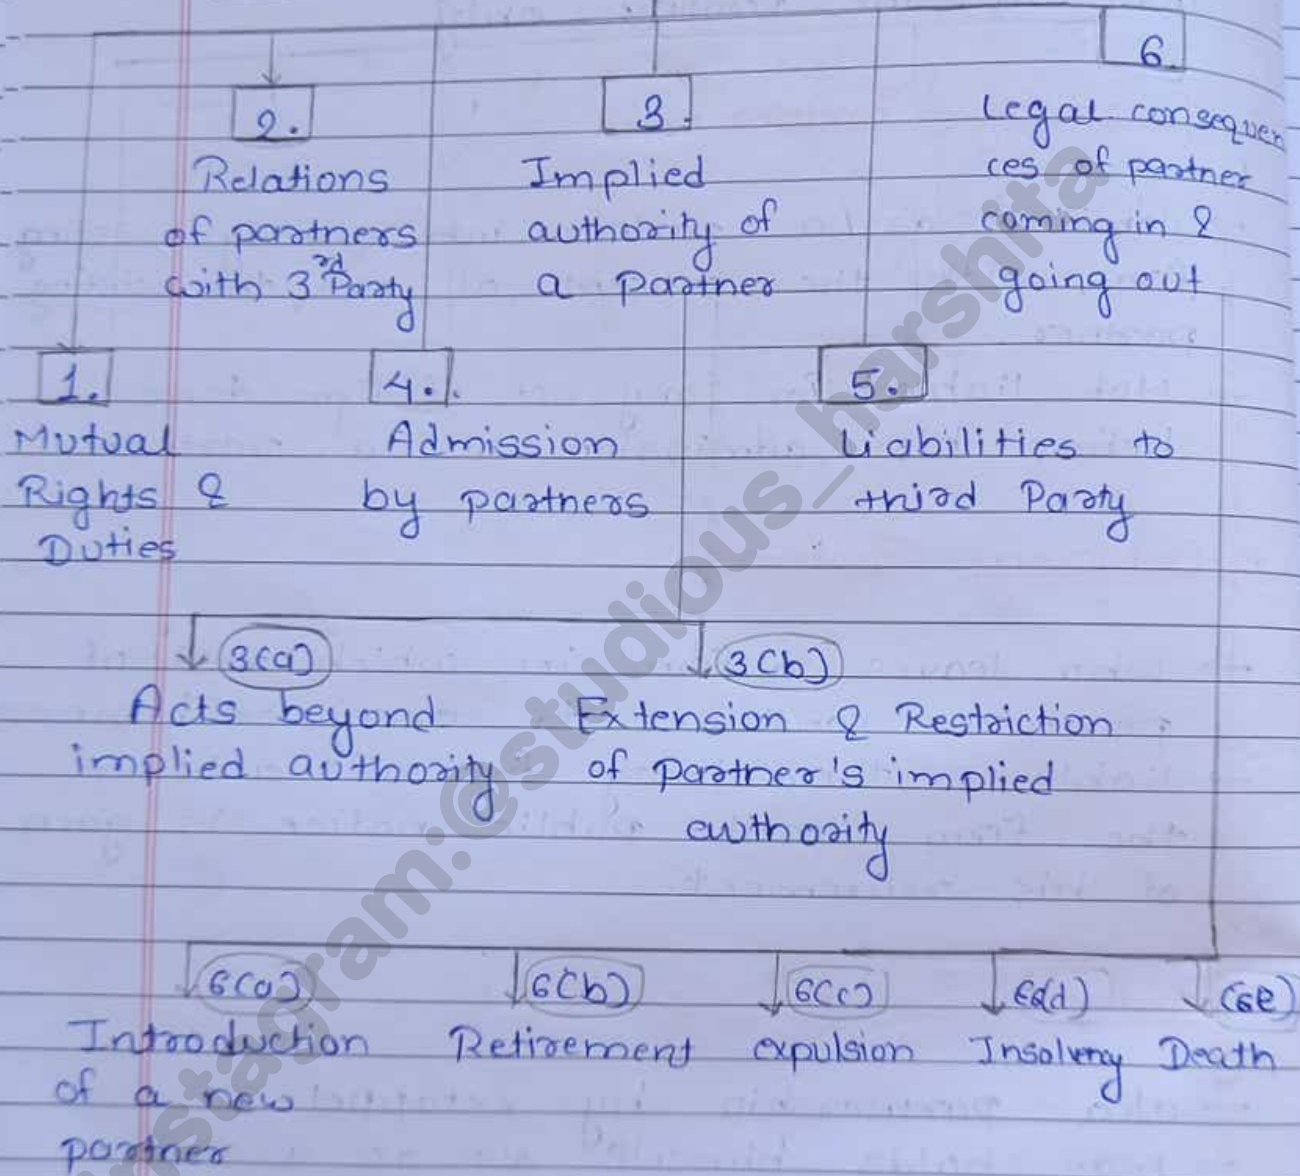 2.
Relations
of partners
with 3rd Party
3.
Implied
authority of
a Partner
6.
Legal consequen
ces of partner
coming in &
going out
1.
Mutual
Rights &
Duties
4.
Admission
by partners
5.
Liabilities to
third Party
3(a)
Acts beyond
implied authority
3(b)
Extension & Restriction
of partner's implied
authority
6(a)
Introduction
of a new
partner
6(b)
Retirement
6(c)
expulsion
6(d)
Insolvency
(6e)
Death
Instagram:@estudious_harshita